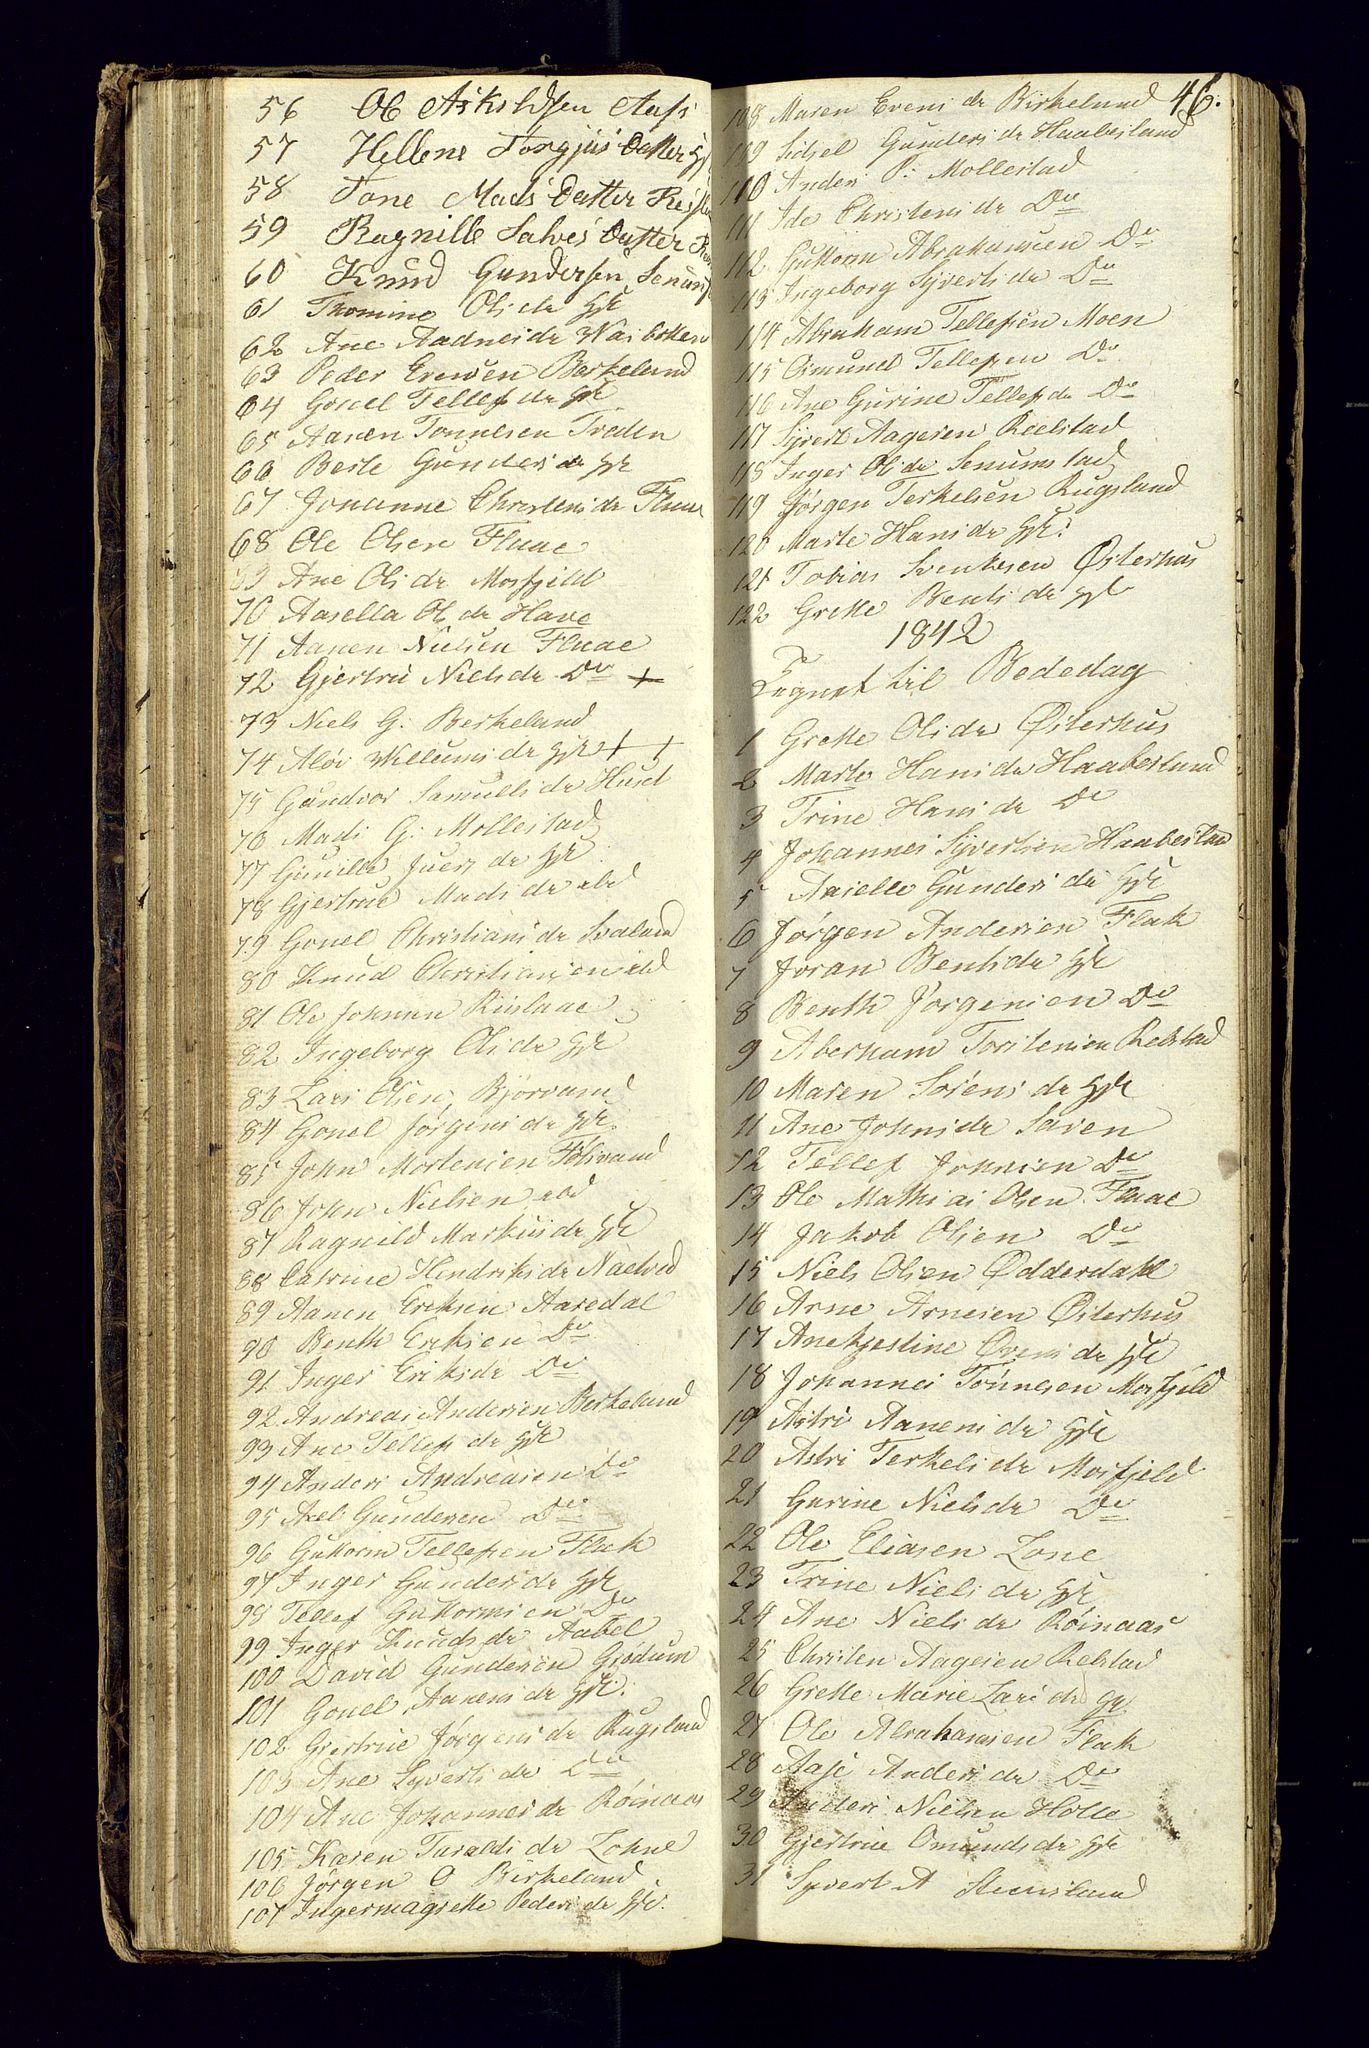 56 Ole Askildsen Aas
57 Hellene Torgjus Datter
58 Tone Mads Datter
59 Ragnille Salves Datter
60 Knud Gundersen
61 Thomine Ols dr Hst
62 Ane Aadnes dr
63 Peder Evensen Berkeland
64 Gonel Tellefs dr Hst
65 Aanen Tonnesen Treden
66 Berte Gunders dr Hst
67 Johanne Christens dr Flaae
68 Ole Olsen Flaae
69 Ane Ols dr Mosfjeld
70 Aasella Ols dr Have
71 Aanen Nielsen Flaae
72 Gjertru Niels dr Do +
73 Niels G: Berkeland
74 Alov Willums dr Hst + +
75 Gundvor Samuels dr Huset
76 Mads G: Mollestad
77 Gunille Juers dr Hst
78 Gjertrue Mads dr ibd
79 Gonel Christians dr Svaland
80 Knud Christiansen ibd
81 Ole Johnsen
82 Ingeborg Ols dr Hst
83 Lars Olsen Bjorvand
84 Gonel Jørgens dr Hst
85 John Mortensen
86 John Nielsen ibd
87 Ragnild Markus dr Hst
88 Catrine Hendriks dr
89 Aanen Eriksen Aaredal
90 Benth Eriksen Do
91 Inger Eriks dr Do
92 Andreas Andersen Berkeland
93 Ane Tellefs dr Hst
94 Anders Andreasen Do
95 Axel Gundersen Do
96 Guttorm Tellefsen Flak
97 Inger Gunders dr Hst
98 Tellef Guttormsen Do
99 Inger Knuds dr Aabel
100 David Gundersen Grødum
101 Gonel Aanens dr Hst
102 Gjertrue Jørgens dr Rugsland
103 Ane Syverts dr Do
104 Ane Johannes dr Røinaas
105 Karen Taralds dr Lohne
106 Jørgen O Berkeland
107 Ingermagrette Peders dr Hst
46.
108 Maren Evens dr Birkeland
109 Sidsel Gunders dr Haabesland
110 Anders P: Mollestad
111 Ide Christens dr Do
112 Guttorm Abrahamsen Do
113 Ingeborg Syverts dr Do
114 Abraham Tellefsen Moen
115 Osmund Tellefsen Do
116 Ane Gurine Tellefs dr Do
117 Syvert Aagesen Relstad
118 Inger Ols dr Senumstad
119 Jørgen Terkelsen Rugsland
120 Marte Hans dr Hst:
121 Tobias Svenksen Østerhus
122 Grette Bents dr Hst
1842
Tegnet til Bededag
1 Grette Ols dr Østerhus
2 Marte Hans dr Haabesland
3 Trine Hans dr Do
4 Johannes Syvertsen Haabesland
5 Aaselle Gunders dr Hst
6 Jørgen Andersen Flak
7 Joran Benths dr Hst
8 Benth Jørgensen Do
9 Aberham Torstensen Relstad
10 Maren Sørens dr Hst
11 Ane Johns dr Saven
12 Tellef Johnsen Do
13 Ole Mathias Olsen Flaae
14 Jakob Olsen Do
15 Niels Olsen Ødderdahl
16 Arne Arnesen Østerhus
17 Anekjestine Ovens dr Hst
18 Johannes Tønnesen Mosfjeld
19 Astri Aanens dr Hst
20 Astri Terkels dr Mosfjeld
21 Gurine Niels dr Do
22 Ole Eliasen Lone
23 Trine Niels dr Hst
24 Ane Niels dr Røinaas
25 Christen Aagesen Relstad
26 Grette Marie Lars dr
27 Ole Abrahamsen Flak
28 Aase Anders dr Do
29 Anders Nielsen Holte
30 Gjertrue Omunds dr Hst
31 Syvert A